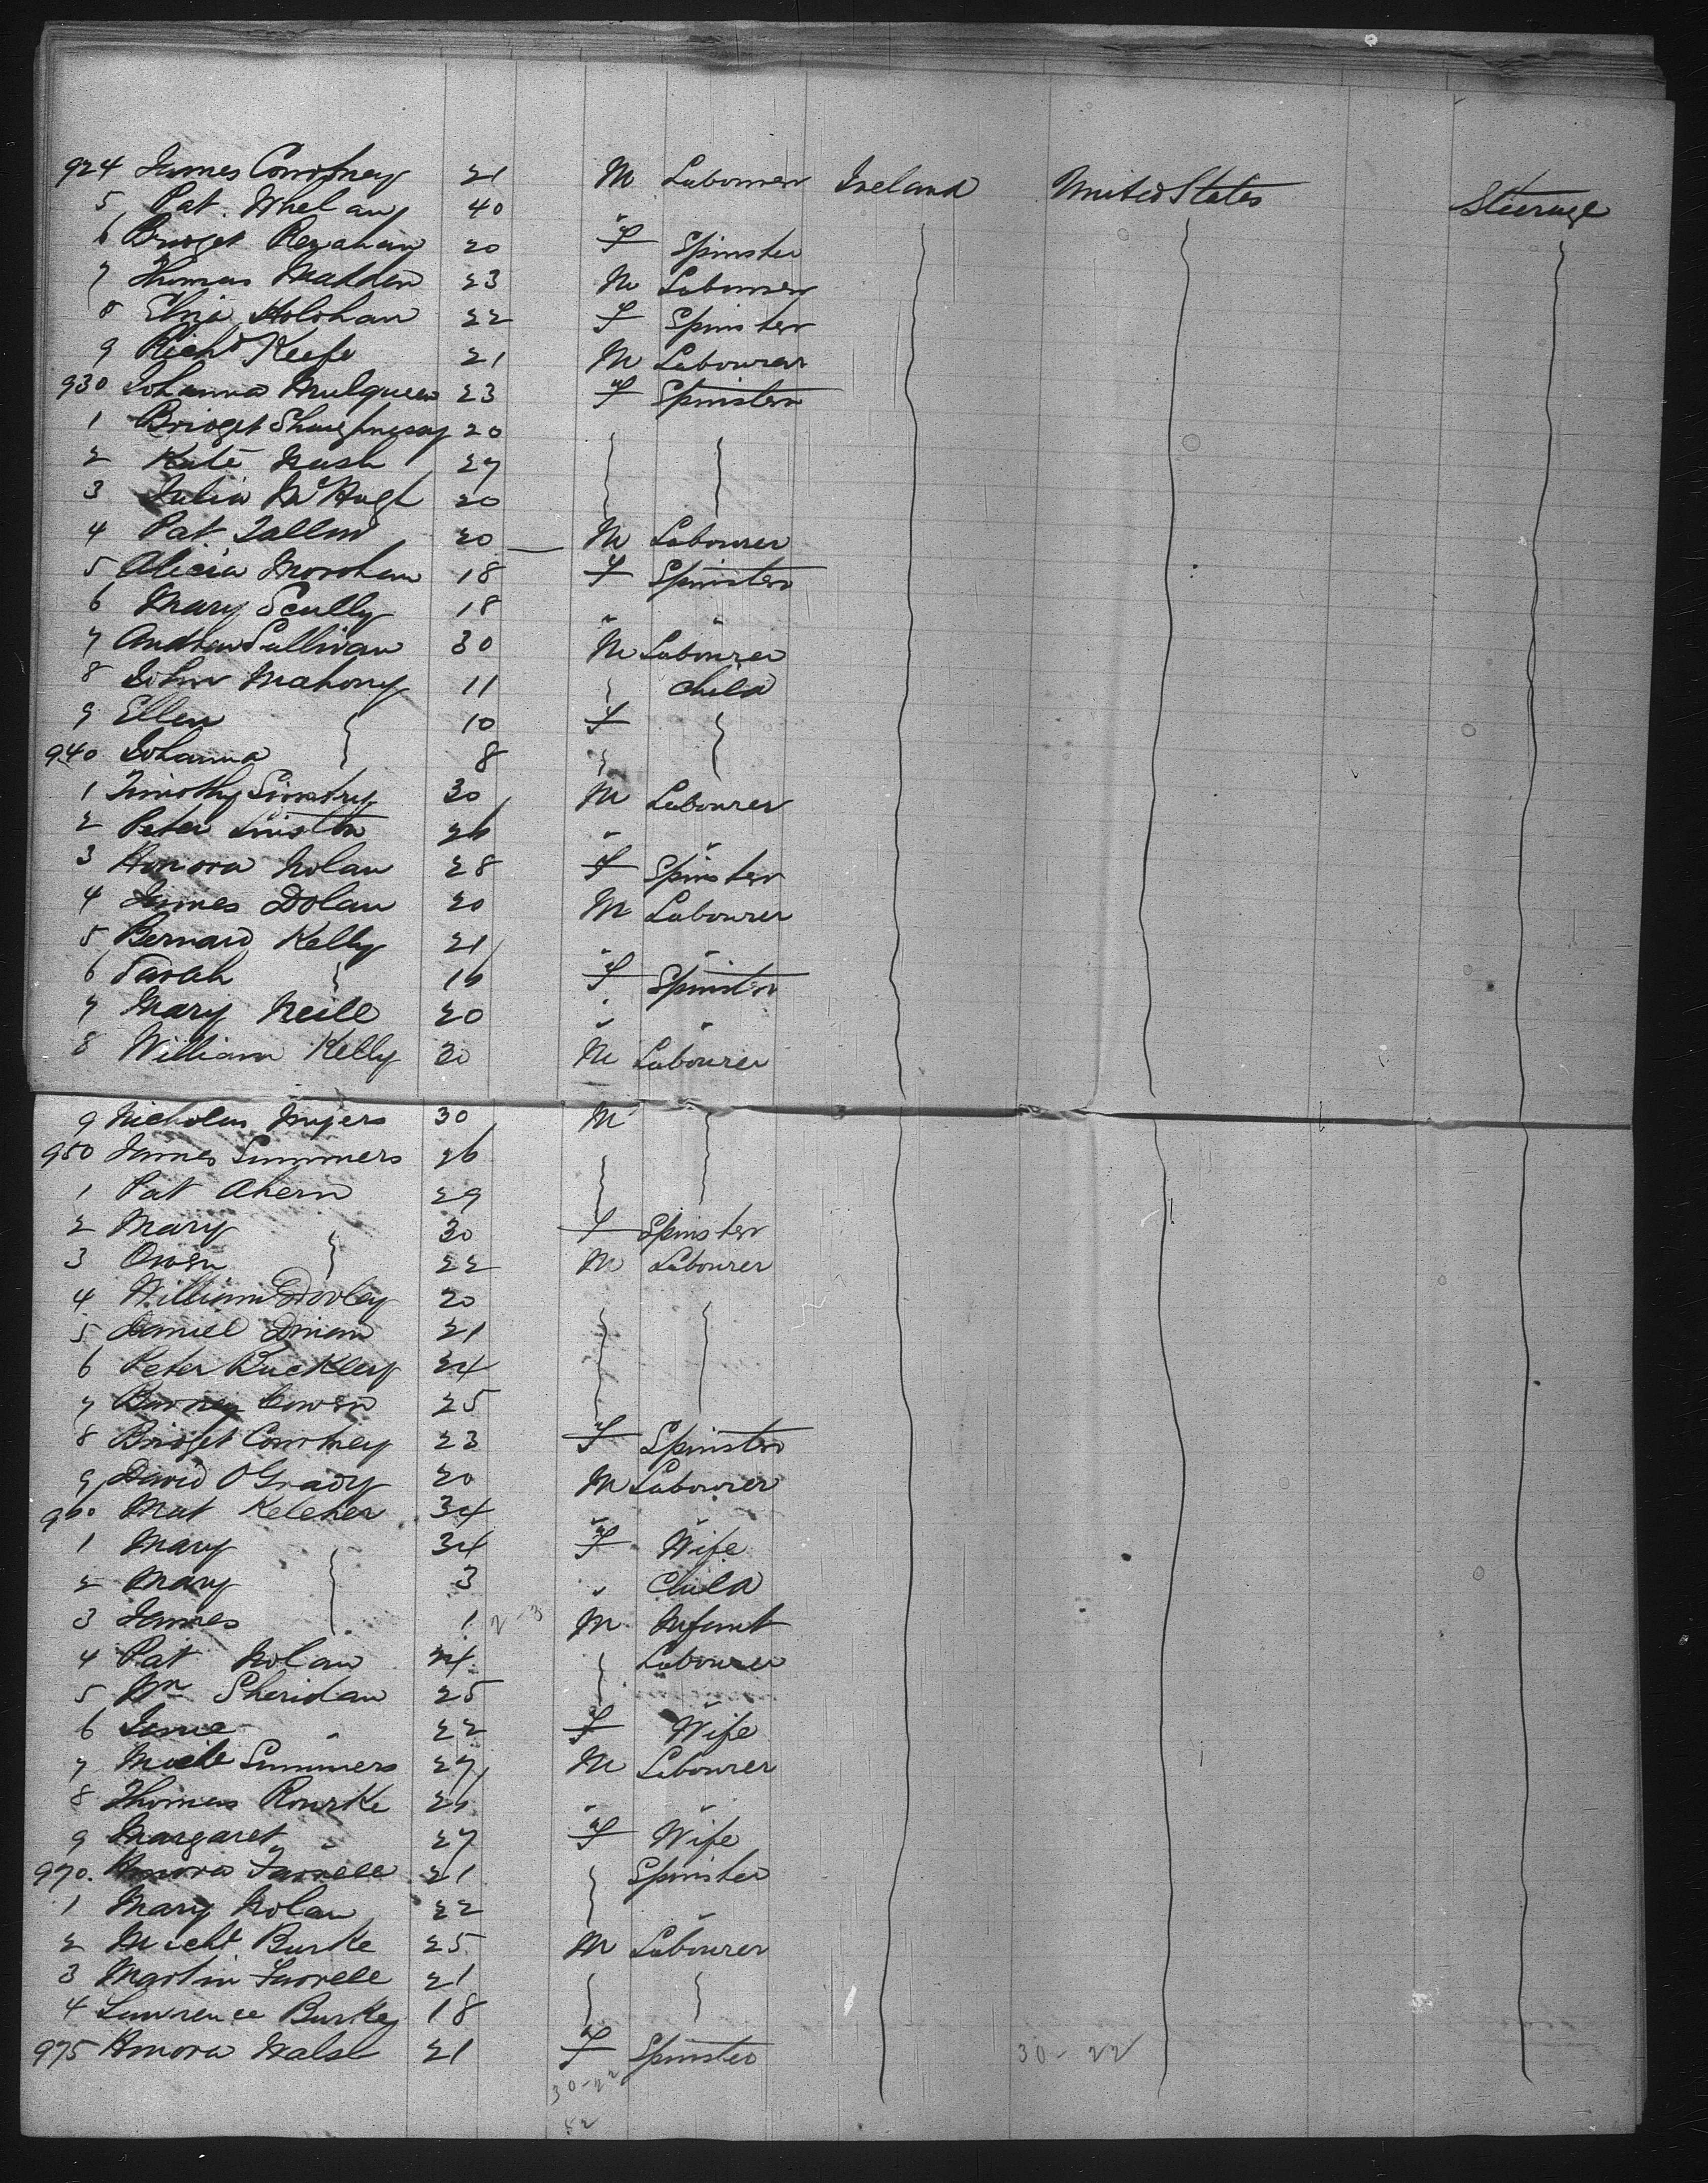 924 James Courtney 21 M Labourer Ireland United States Steerage
5 Pat Whelan 40 "
6 Bridget 20 F Spinster
7 Thomas Madden 23 M Labourer
8 Eliza Holohan 22 F Spinster
9 Richd Keefe 21 M Labourer
930 Johanna Mulqueen 23 F Spinster
1 Bridget Shaughnessy 20
2 Kate Nash 27
3 Julia McHugh 20
4 Pat 20 — M Labourer
5 Alicia 18 F Spinster
6 Mary Scully 18 " "
7 Andrew Sullivan 30 M Labourer
8 John Mahony 11 Child
9 Ellen 10 F
940 Johanna 8
1 Timothy 30 M Labourer
2 Peter 26 " "
3 Honora Nolan 28 F Spinster
4 James Dolan 20 M Labourer
5 Bernard Kelly 21 " "
6 Sarah 16 F Spinster
7 Mary Neill 20 " "
8 William Kelly 30 M Labourer
9 Nicholas Myers 30 M
950 James Summers 26
1 Pat Ahern 29
2 Mary 30 F Spinster
3 Owen 22 M Labourer
4 William Dooley 20
5 Daniel 21
6 Peter Buckley 24
7 25
8 Bridget Courtney 23 F Spinster
9 David O'Grady 20 M Labourer
960 Mat Keleher 34 " "
1 Mary 34 F Wife
2 Mary 3 " Child
3 James 1 2-3 M Infant
4 Pat Nolan 24 Labourer
5 Wm Sheridan 25 "
6 " 22 F Wife
7 Summers 27 M Labourer
8 Thomas Rourke 26 " "
9 Margaret " 27 F Wife
970 Honora Farrell 21 Spinster
1 Mary Nolan 22 "
2 Michl Burke 25 M Labourer
3 Martin Farrell 21
4 Lawrence Burke 18
975 Honora Walsh 21 F Spinster
30-22 30-22
52